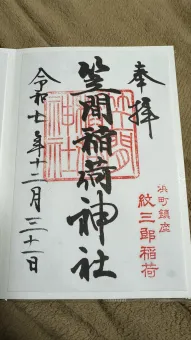 奉拝
浜町鎮座
紋三郎稲荷
笠間稲荷神社
笠間
神社
令和七年十二月三十一日